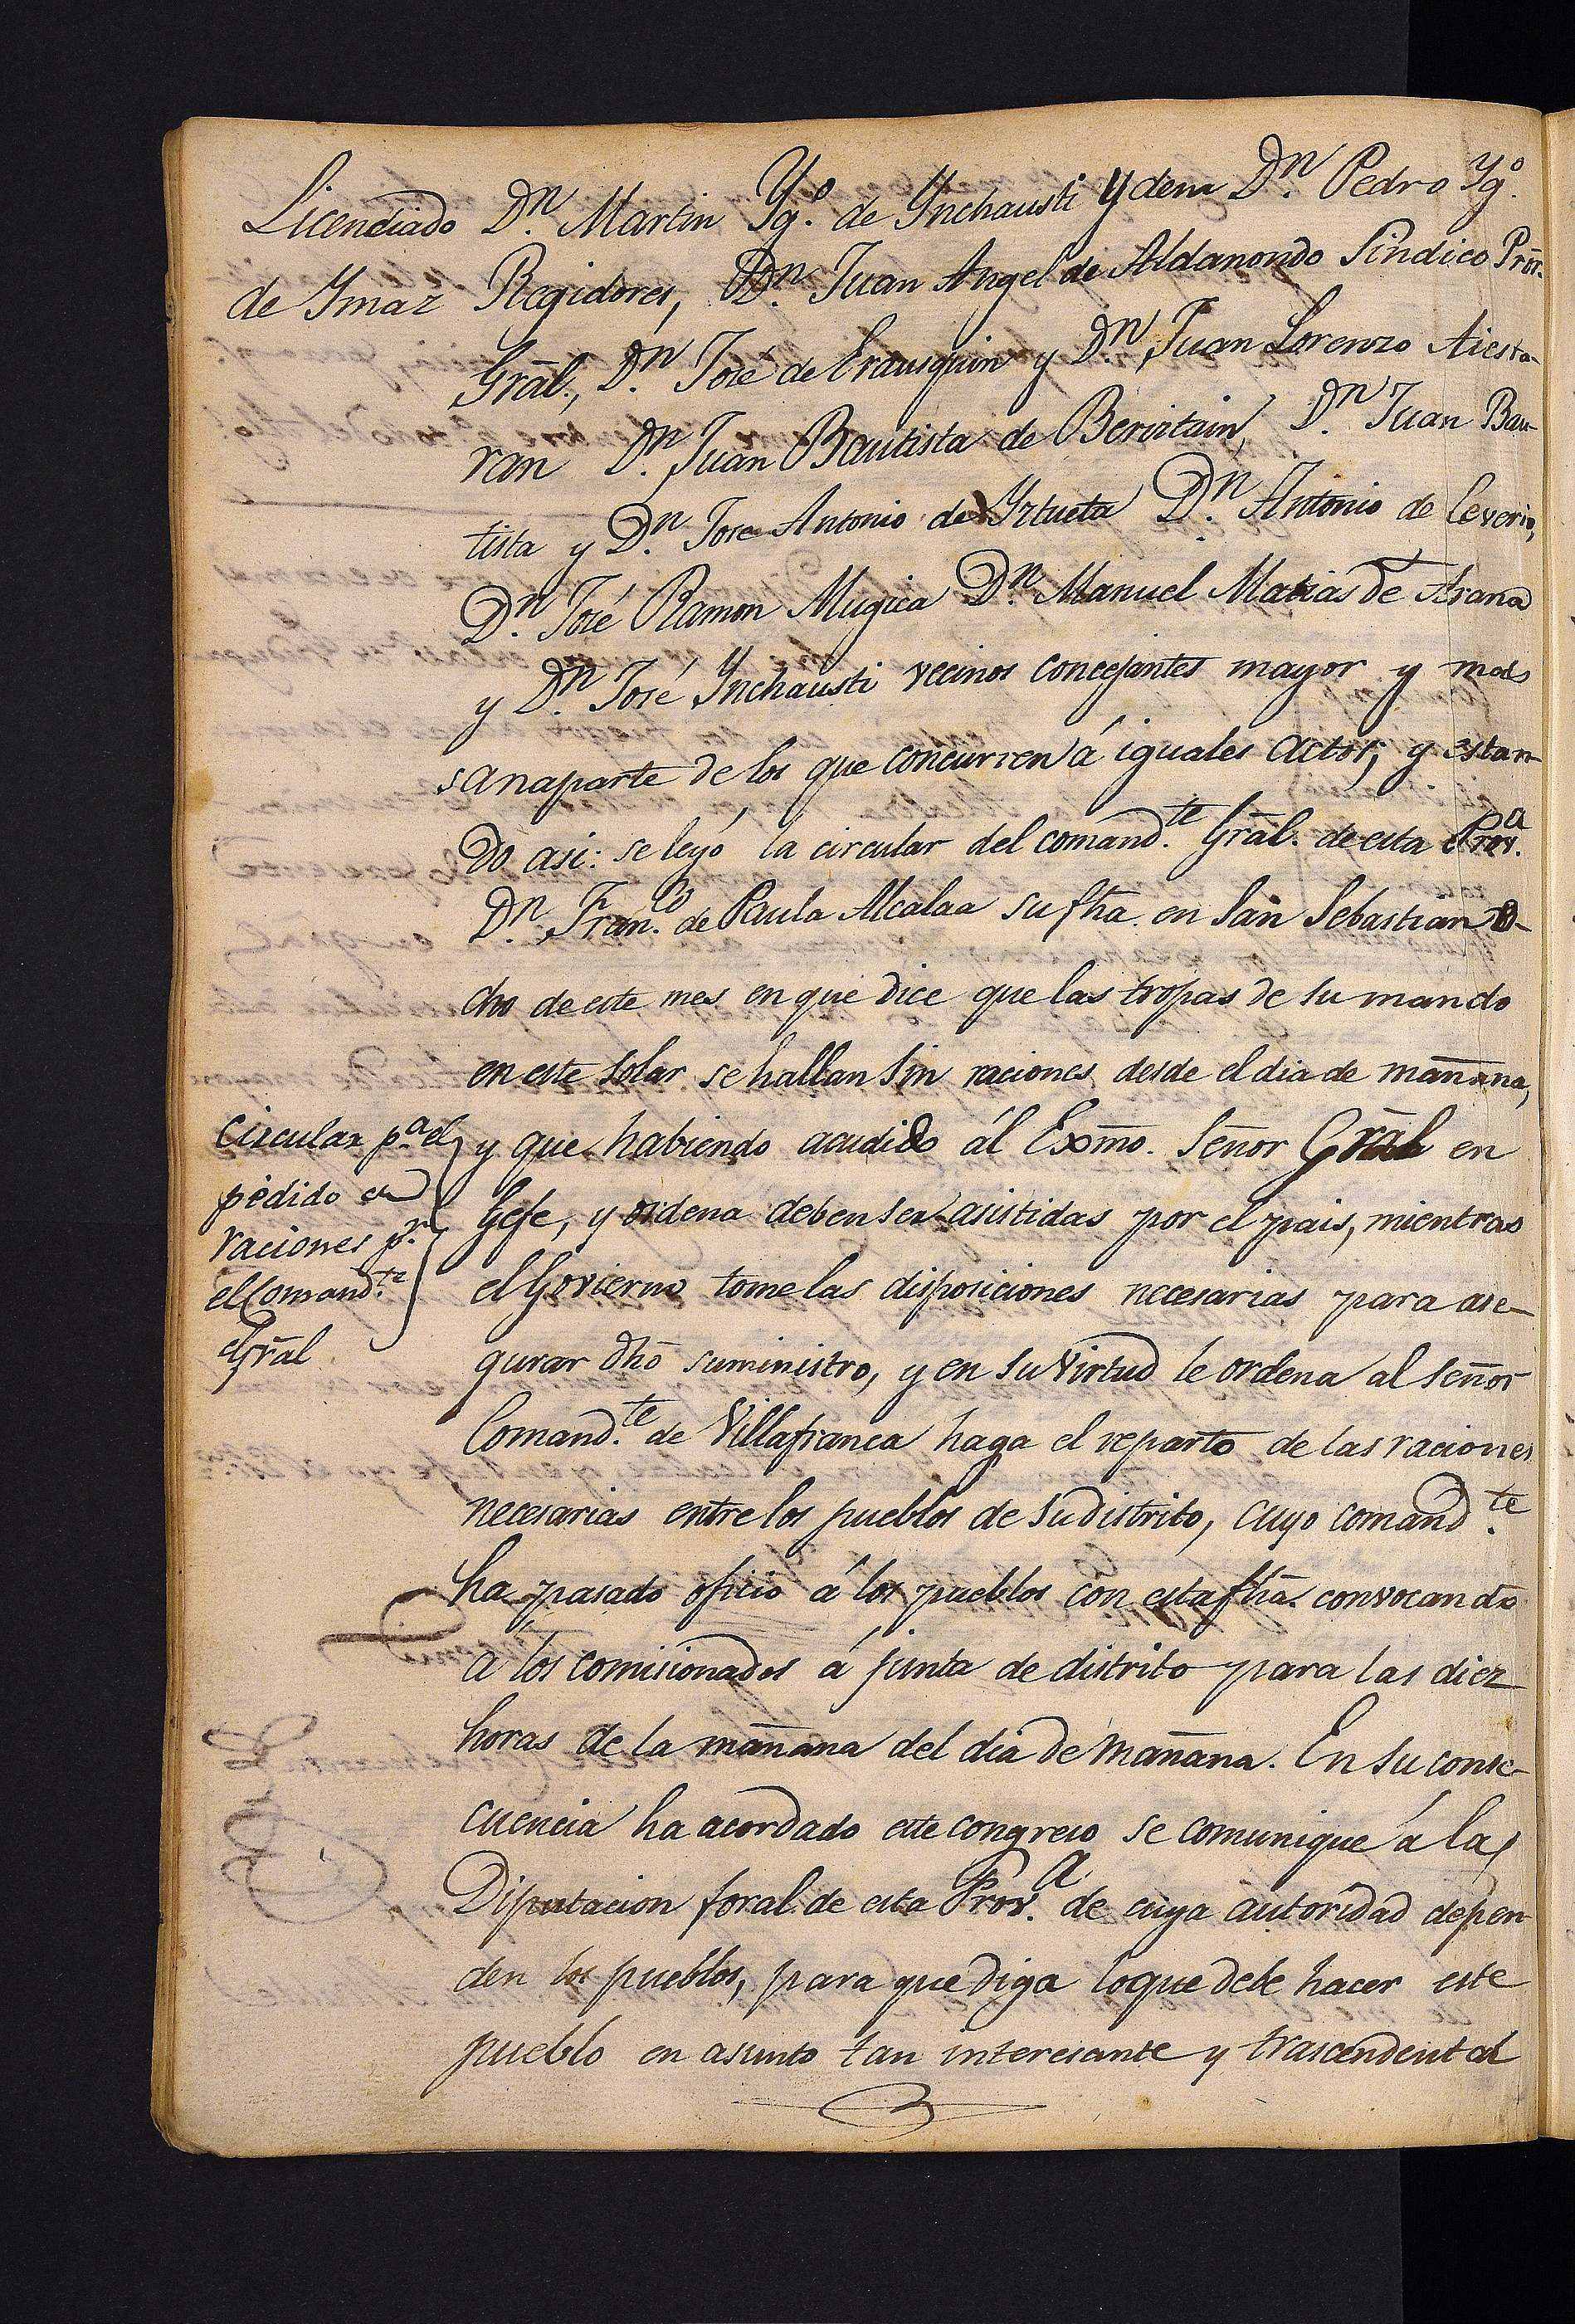 Licenciado Dn. Martin Ygo. de Ynchausti Ydem Dn. Pedro Ygo.
de Ymaz Regidores, Dn. Juan Angel de Aldanondo Sindico Pror.
Gral., Dn. José de Erausquin y Dn. Juan Lorenzo Aiesta-
ran Dn. Juan Bautista de Beriztain, Dn. Juan Bau-
tista y Dn. Jose Antonio de Yztueta Dn. Antonio de
Dn. José Ramon Mugica Dn. Manuel Matias de Arana
y Dn. José Ynchausti vecinos concejantes mayor y mas
sanaparte de los que concurren á iguales actos, y estan-
do asi: se leyó la circular del comandte. Gral. de esta Prova.
Dn. Franco. de Paula Alcalaa su fha. en San Sebastian O-
cho de este mes en que dice que las tropas de su mando
en este solar se hallan sin raciones desde el dia de mañana,
y que habiendo acudido ál Exmo. Señor Gral en
Gefe, y ordena deben ser asistidas por el pais, mientras
el Govierno tome las disposiciones necesarias para ase-
gurar dho suministro, y en su virtud le ordena al señor
Comandte. de Villafranca haga el reparto de las raciones
necesarias entre los pueblos de su distrito, cuyo comandte.
ha pasado oficio á los pueblos con esta fha. convocando
a los comisionados á junta de distrito para las diez
horas de la mañana del dia de mañana. En su conse-
cuencia ha acordado este congreso se comunique á la
Diputacion foral de esta Prova. de cuya autoridad depen
den los pueblos, para que diga loque debe hacer este
pueblo en asunto tan interesante y trascendental
Circular pa. el
pedido de
raciones pr.
el Comandte.
Gral